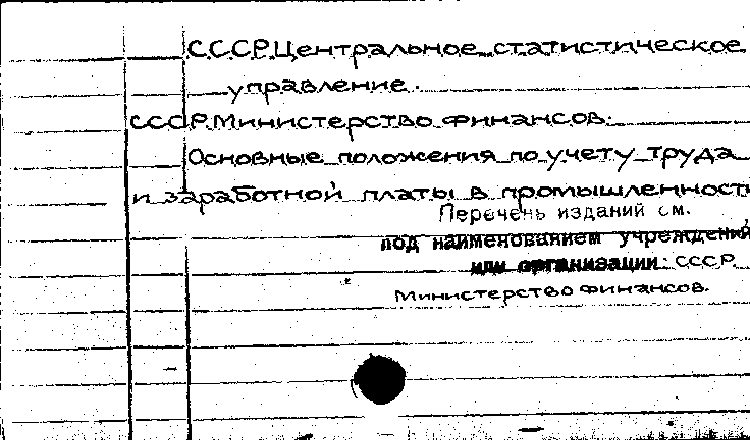 С.С.С.Р. Центральное статистическое
управление.
СССР. Министерство финансов.
Основные положения по учету труда
и заработной платы в промышленности
Перечень изданий см.
под наименованием учреждений
или организации: СССР.
Министерство финансов.